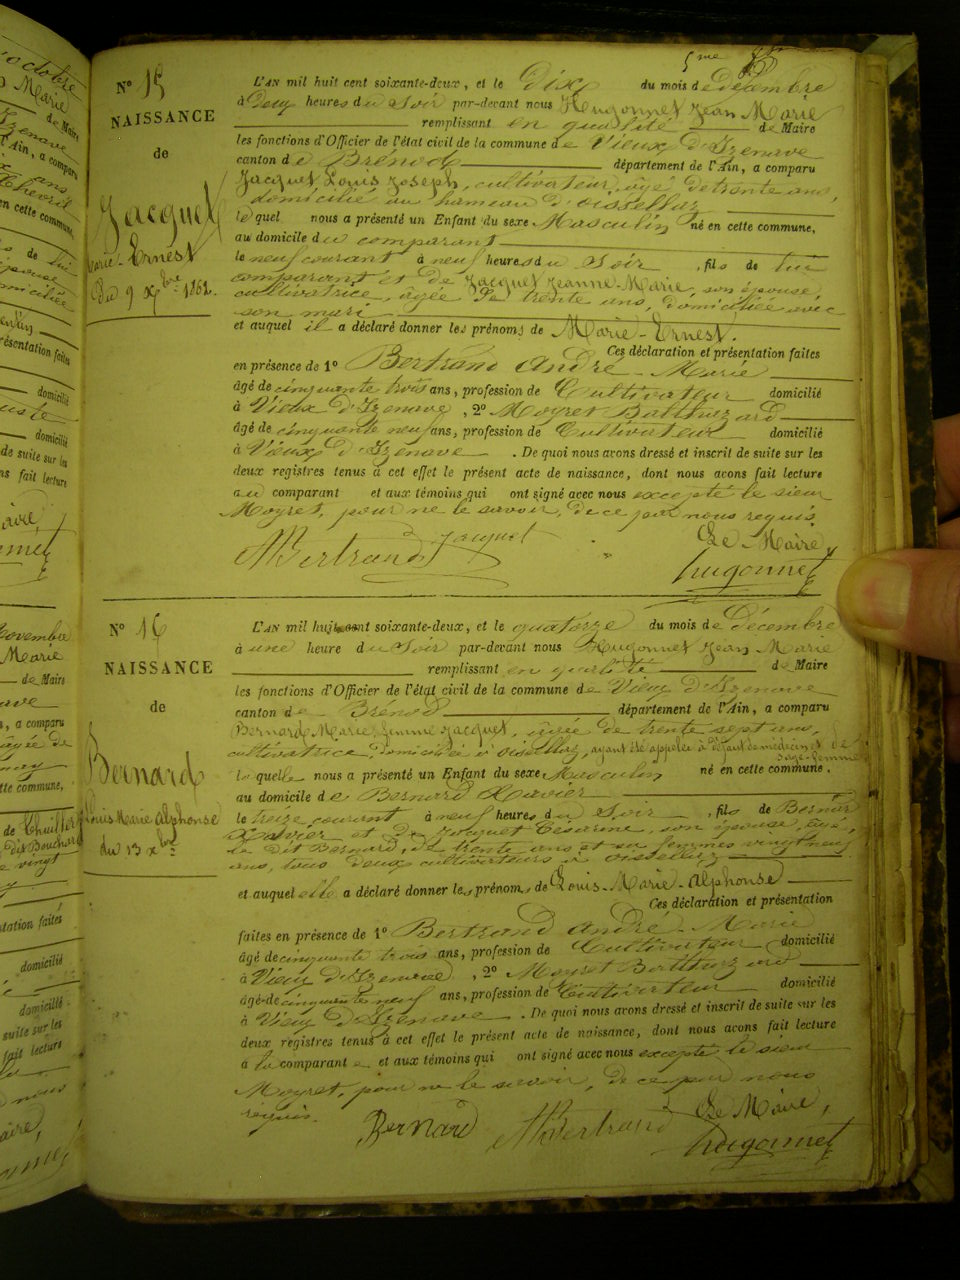 5me
N° 15
NAISSANCE
de
Jacquet
Marie-Ernest
Du 9 Xbre 1862.
L'AN mil huit cent soixante-deux, et le Dix du mois de décembre
à Deux heures du Soir par-devant nous Hugonnet Jean Marie
remplissant en qualité de Maire
les fonctions d'Officier de l'état civil de la commune de Vieux d'Izenave
canton de Brénod département de l'Ain, a comparu
Jacquet Louis Joseph, cultivateur, âgé de trente ans,
domicilié au hameau d'Oisellaz
le quel nous a présenté un Enfant du sexe Masculin né en cette commune,
au domicile du comparant
le neuf courant à neuf heures du Soir, fils de lui
comparant et de Jacquet Jeanne-Marie, son épouse,
cultivatrice, âgée de trente ans, domiciliée avec
son mari
et auquel il a déclaré donner les prénoms de Marie-Ernest.
Ces déclaration et présentation faites
en présence de 1° Bertrand André-Marie
âgé de cinquante trois ans, profession de Cultivateur domicilié
à Vieux d'Izenave, 2° Moyret Balthazard
âgé de cinquante neuf ans, profession de Cultivateur domicilié
à Vieux d'Izenave. De quoi nous avons dressé et inscrit de suite sur les
deux registres tenus à cet effet le présent acte de naissance, dont nous avons fait lecture
au comparant et aux témoins qui ont signé avec nous excepté le sieur
Moyret, pour ne le savoir, de ce par nous requis.
Le Maire,
ABertrand Jacquet hugonnet
N° 16
NAISSANCE
de
Bernard
Louis Marie Alphonse
du 13 Xbre
L'AN mil huit cent soixante-deux, et le quatorze du mois de Décembre
à une heure du Soir par-devant nous Hugonnet Jean Marie
remplissant en qualité de Maire
les fonctions d'Officier de l'état civil de la commune de Vieux d'Izenave
canton de Brénod département de l'Ain, a comparu
Bernard Marie, femme Jacquet, âgée de trente sept ans,
cultivatrice, domiciliée à Oisellaz, ayant été appelée à défaut de médecin et de
sage-femme
laquelle nous a présenté un Enfant du sexe Masculin né en cette commune,
au domicile de Bernard Xavier
le treize courant à neuf heures du Soir, fils de Bernard
Xavier et de Jacquet Césarine, son épouse, âgé,
le dit Bernard, de trente ans et sa femme vingt neuf
ans, tous deux cultivateurs à Oisellaz
et auquel elle a déclaré donner les prénoms de Louis-Marie-Alphonse
Ces déclaration et présentation
faites en présence de 1° Bertrand André-Marie
âgé de cinquante trois ans, profession de Cultivateur domicilié
à Vieux d'Izenave, 2° Moyret Balthazard
âgé de cinquante neuf ans, profession de Cultivateur domicilié
à Vieux d'Izenave. De quoi nous avons dressé et inscrit de suite sur les
deux registres tenus à cet effet le présent acte de naissance, dont nous avons fait lecture
à la comparante et aux témoins qui ont signé avec nous excepté le sieur
Moyret, pour ne le savoir, de ce par nous
requis.
Le Maire,
Bernard ABertrand hugonnet